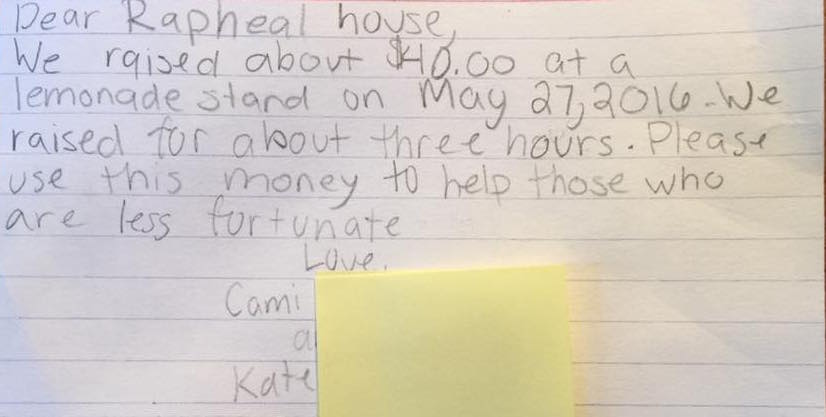 Dear Rapheal house,
We raised about $40.00 at a
lemonade stand on May 27, 2016. We
raised for about three hours. Please
use this money to help those who
are less fortunate
Love,
Cami
Kate